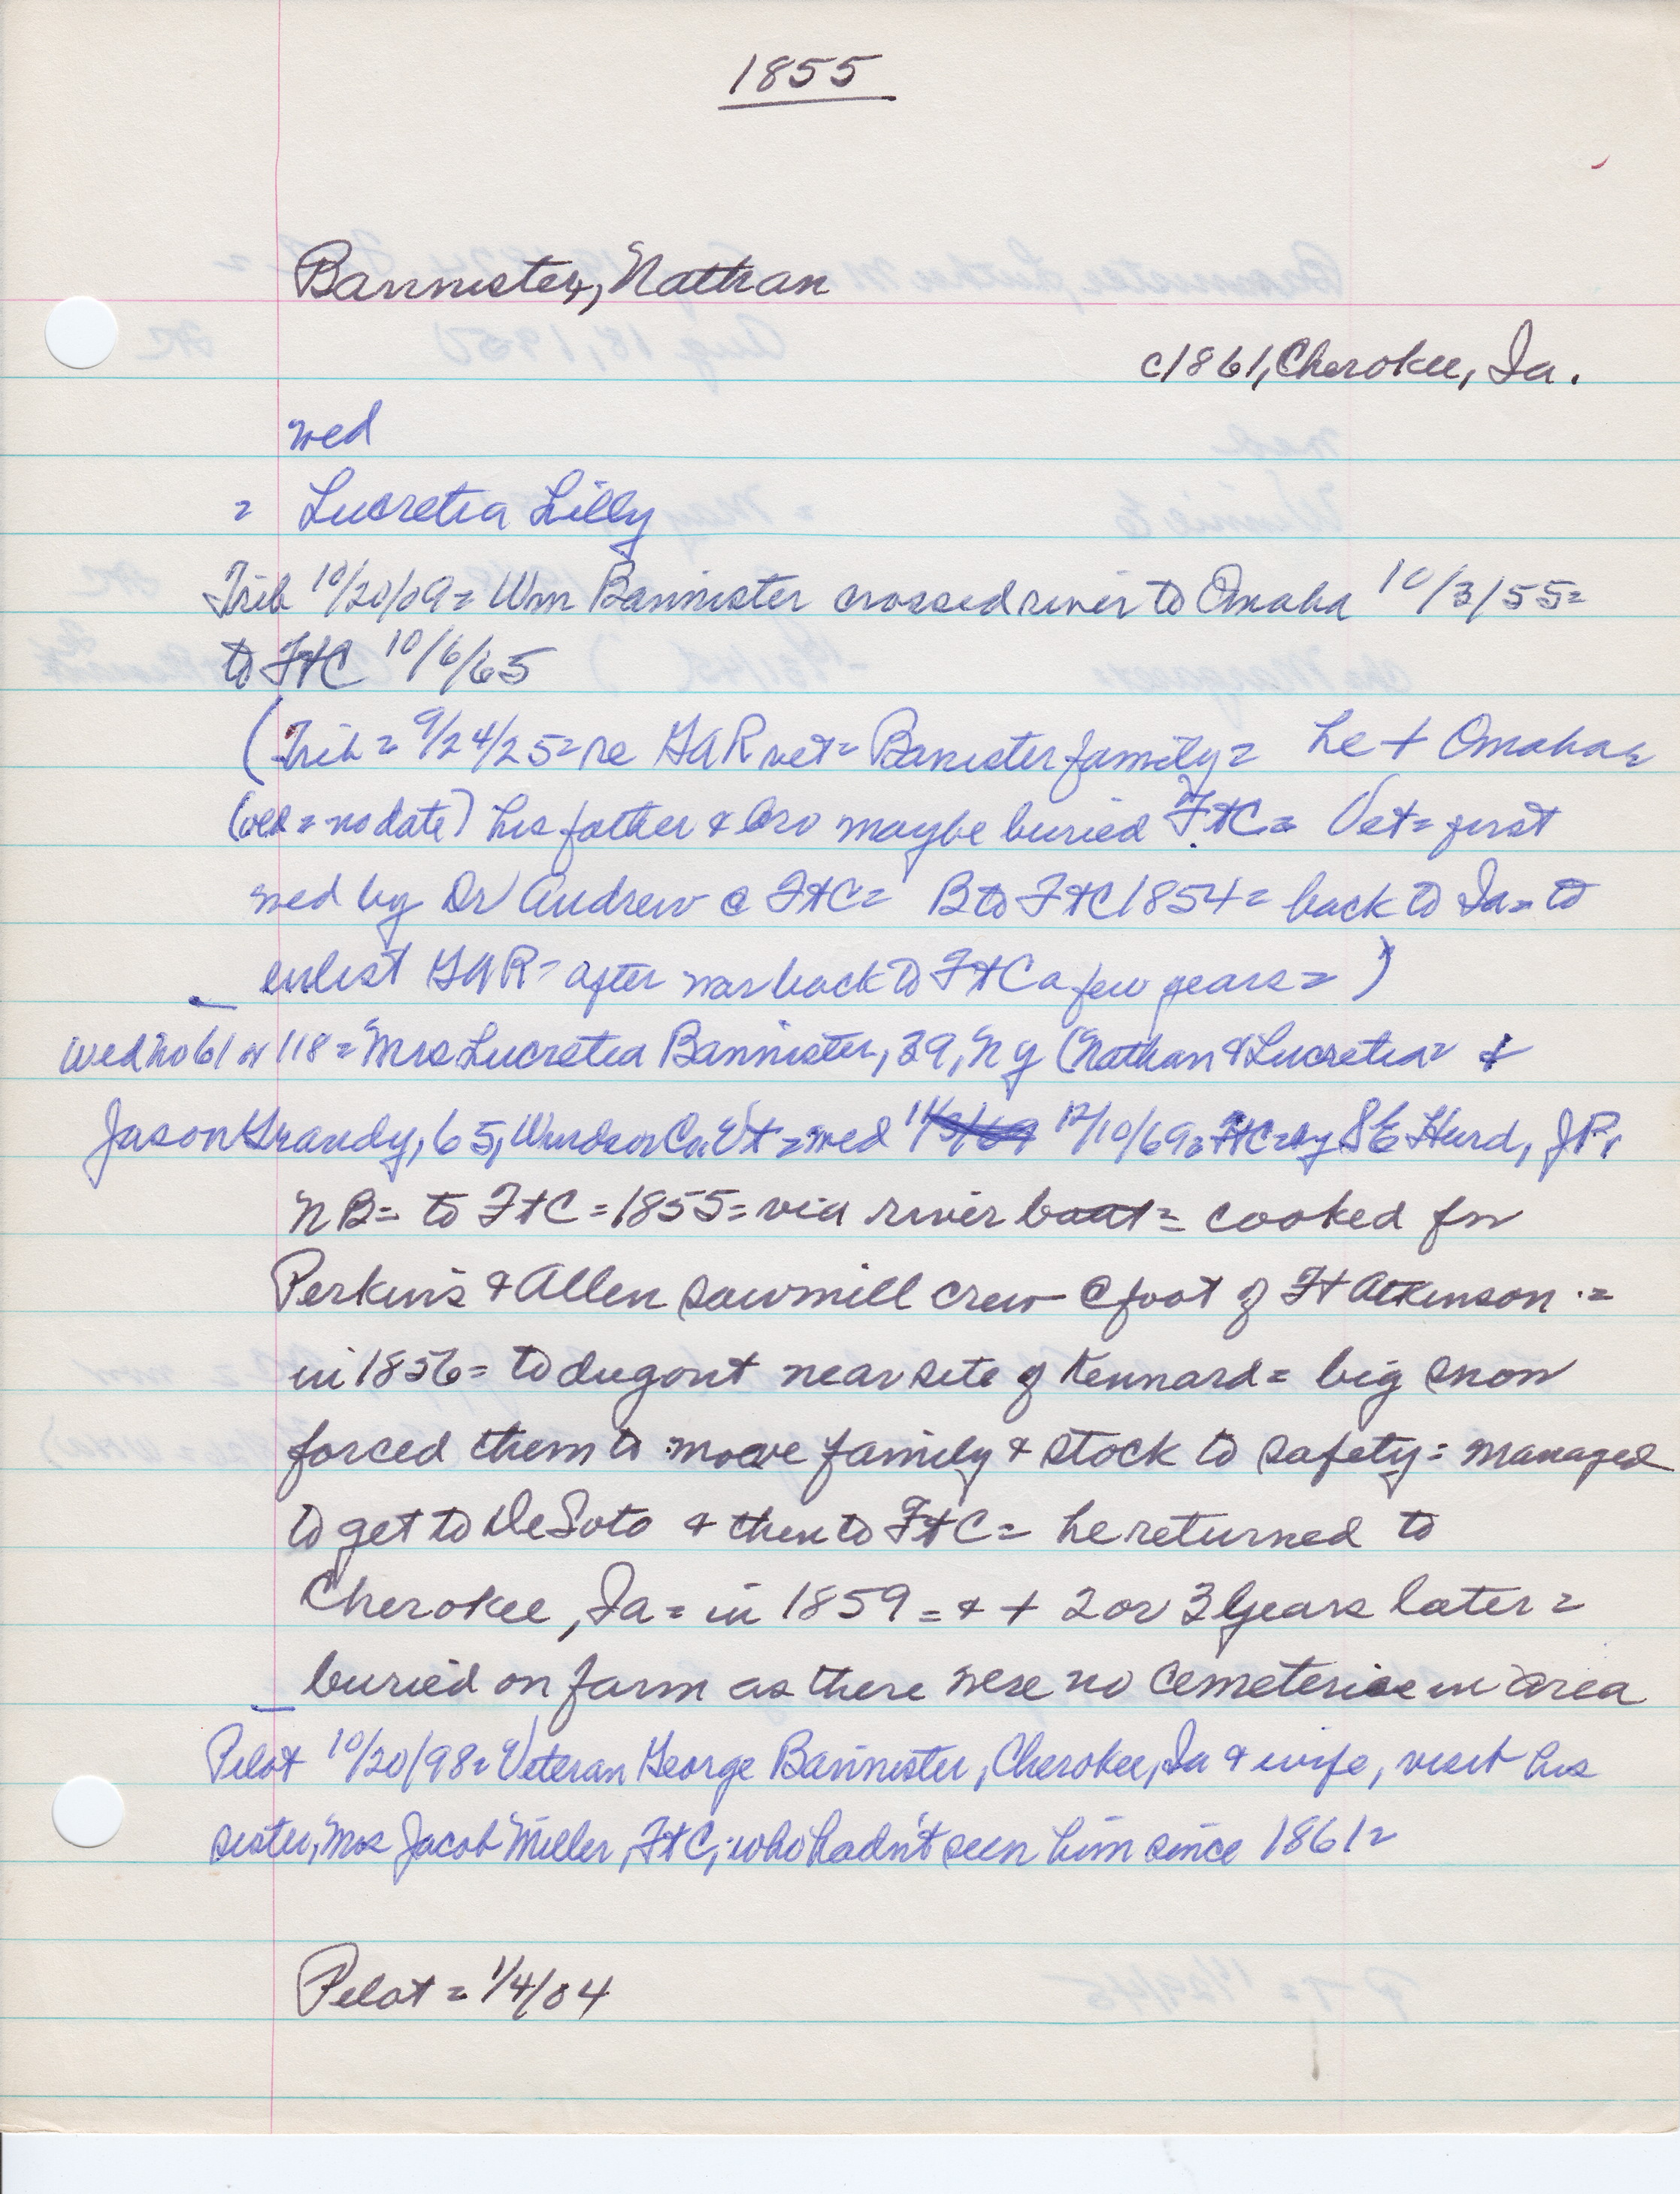 1855
Bannister, Nathan
c1861, Cherokee, Ia.
wed
= Lucretia Lilly
Trib 10/20/09 = Wm Bannister crossed river to Omaha 10/3/55 =
to FtC 10/6/65
(Trib = 9/24/25 = re GAR vet = Banister family = he + Omaha =
= no date) his father & bro maybe buried FtC = Vet = first
wed by Dr Andrew @ FtC = B to FtC 1854 = back to Ia = to
enlist GAR = after war back to FtC a few years = )
Wed no 61 or 118 = Mrs Lucretia Bannister, 39, N Y (Nathan & Lucretia = &
Jason Grandy, 65, Windsor Co. Vt = wed 11/3/69 12/10/69 = FtC = by S E Hurd, J P.
N B = to FtC = 1855 = via river boat = cooked for
Perkins & Allen sawmill crew @ foot of Ft Atkinson =
in 1856 = to dugout near site of Kennard = big snow
forced them to move family & stock to safety = managed
to get to DeSoto & then to FtC = he returned to
Cherokee, Ia = in 1859 = & + 2 or 3 years later =
buried on farm as there were no cemeteries in area
Pilot 10/20/98 = Veteran George Bannister, Cherokee, Ia & wife, visit his
sister, Mrs Jacob Miller, FtC, who hadn't seen him since 1861 =
Pilot = 1/4/04